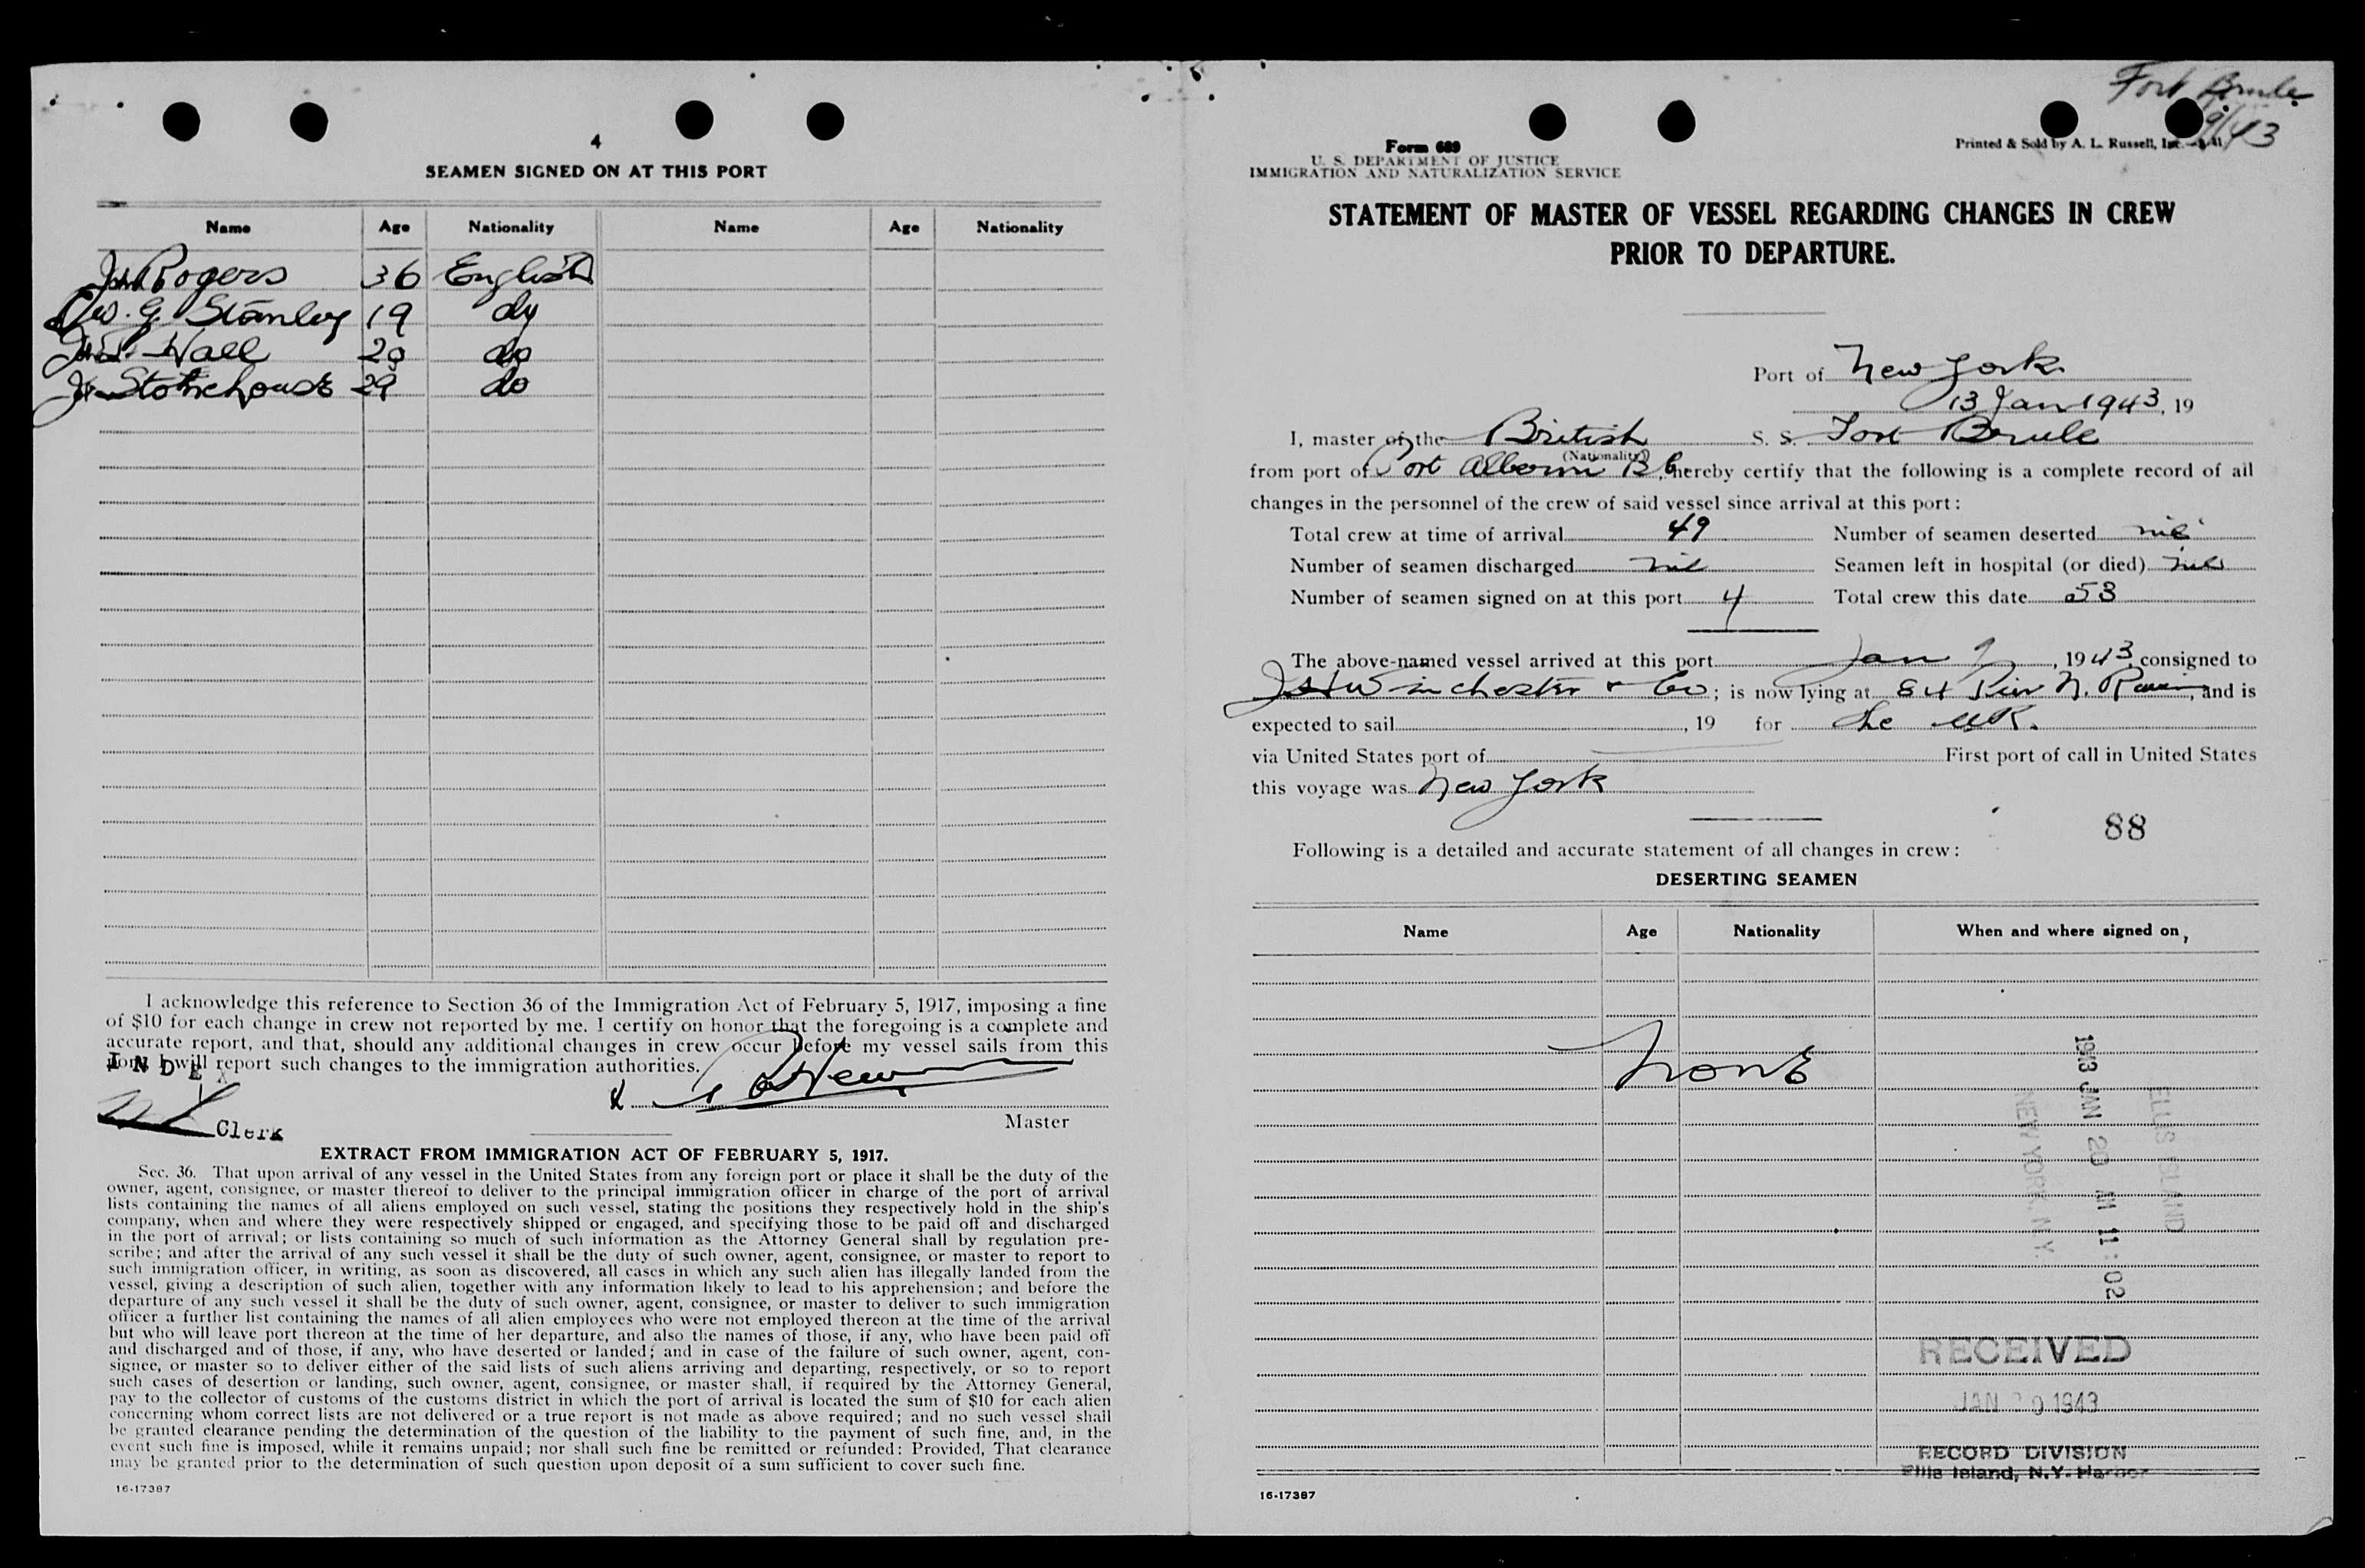 4
SEAMEN SIGNED ON AT THIS PORT
Name Age Nationality Name Age Nationality
Rogers 36 English
G. Stanley 19 do
Wall 20 do
Stonehouse 29 do
I acknowledge this reference to Section 36 of the Immigration Act of February 5, 1917, imposing a fine
of $10 for each change in crew not reported by me. I certify on honor that the foregoing is a complete and
accurate report, and that, should any additional changes in crew occur before my vessel sails from this
port, I will report such changes to the immigration authorities.
INDEX
Clerk
Master
EXTRACT FROM IMMIGRATION ACT OF FEBRUARY 5, 1917.
Sec. 36. That upon arrival of any vessel in the United States from any foreign port or place it shall be the duty of the
owner, agent, consignee, or master thereof to deliver to the principal immigration officer in charge of the port of arrival
lists containing the names of all aliens employed on such vessel, stating the positions they respectively hold in the ship's
company, when and where they were respectively shipped or engaged, and specifying those to be paid off and discharged
in the port of arrival; or lists containing so much of such information as the Attorney General shall by regulation pre-
scribe; and after the arrival of any such vessel it shall be the duty of such owner, agent, consignee, or master to report to
such immigration officer, in writing, as soon as discovered, all cases in which any such alien has illegally landed from the
vessel, giving a description of such alien, together with any information likely to lead to his apprehension; and before the
departure of any such vessel it shall be the duty of such owner, agent, consignee, or master to deliver to such immigration
officer a further list containing the names of all alien employees who were not employed thereon at the time of the arrival
but who will leave port thereon at the time of her departure, and also the names of those, if any, who have been paid off
and discharged and of those, if any, who have deserted or landed; and in case of the failure of such owner, agent, con-
signee, or master so to deliver either of the said lists of such aliens arriving and departing, respectively, or so to report
such cases of desertion or landing, such owner, agent, consignee, or master shall, if required by the Attorney General,
pay to the collector of customs of the customs district in which the port of arrival is located the sum of $10 for each alien
concerning whom correct lists are not delivered or a true report is not made as above required; and no such vessel shall
be granted clearance pending the determination of the question of the liability to the payment of such fine, and, in the
event such fine is imposed, while it remains unpaid; nor shall such fine be remitted or refunded: Provided, That clearance
may be granted prior to the determination of such question upon deposit of a sum sufficient to cover such fine.
16-17387
Fort Brule
9/43
Form 689
U. S. DEPARTMENT OF JUSTICE
IMMIGRATION AND NATURALIZATION SERVICE
Printed & Sold by A. L. Russell, Inc.
STATEMENT OF MASTER OF VESSEL REGARDING CHANGES IN CREW
PRIOR TO DEPARTURE.
Port of New York
13 Jan 1943, 19
I, master of the British S. S. Fort Brule
(Nationality)
from port of Port Alberni B C, hereby certify that the following is a complete record of all
changes in the personnel of the crew of said vessel since arrival at this port:
Total crew at time of arrival 49 Number of seamen deserted nil
Number of seamen discharged nil Seamen left in hospital (or died) nil
Number of seamen signed on at this port 4 Total crew this date 53
The above-named vessel arrived at this port Jan 9, 1943, consigned to
Winchester & Co; is now lying at 84 Pier N. River, and is
expected to sail , 19 for the UK.
via United States port of First port of call in United States
this voyage was New York
88
Following is a detailed and accurate statement of all changes in crew:
DESERTING SEAMEN
Name Age Nationality When and where signed on
None
ELLIS ISLAND
1943 JAN 20 AM 11:02
NEW YORK, N.Y.
RECEIVED
JAN 20 1943
RECORD DIVISION
Ellis Island, N.Y. Harbor
16-17387